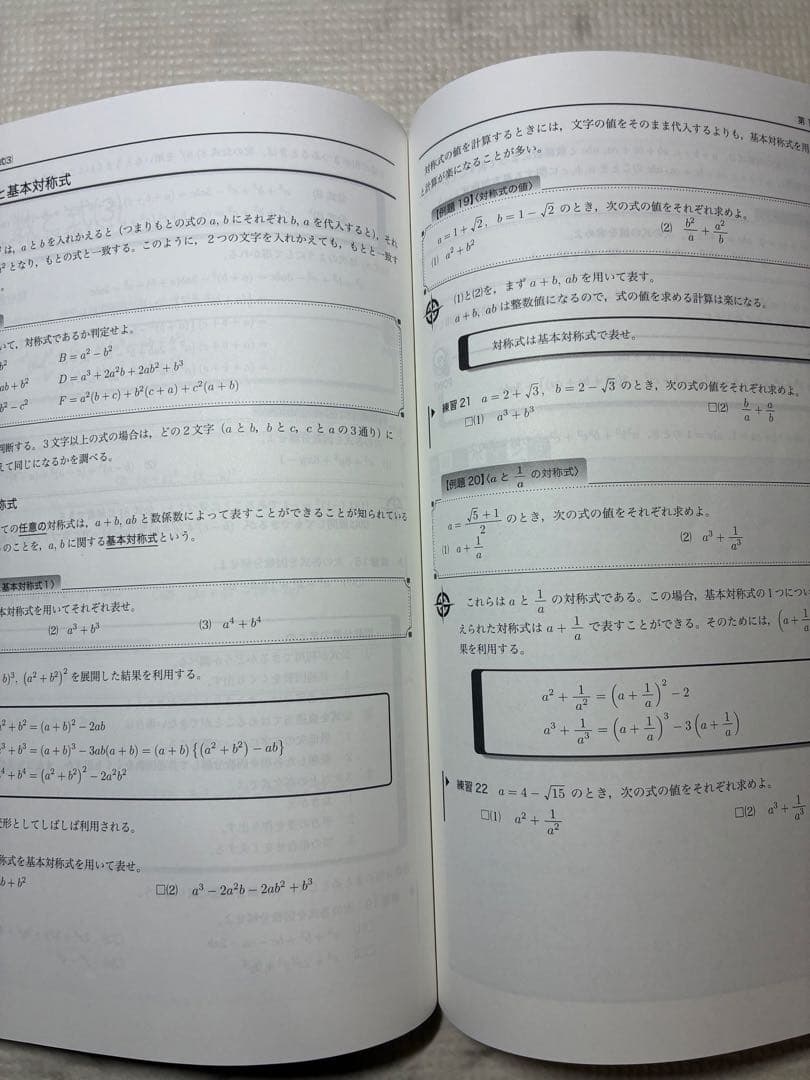 式③
と基本対称式
は，aとbを入れかえると（つまりもとの式のa, bにそれぞれb, aを代入すると），それ
b²となり，もとの式と一致する。このように，２つの文字を入れかえても，もとと一致す
。
いて，対称式であるか判定せよ。
b² B＝a²－b²
ab＋b² D＝a³＋2a²b＋2ab²＋b³
b²－c² F＝a²(b＋c)＋b²(c＋a)＋c²(a＋b)
判断する。３文字以上の式の場合は，どの２文字（aとb, bとc, cとaの３通り）に
えて同じになるかを調べる。
称式
ての任意の対称式は，a＋b, abと数係数によって表すことができることが知られている
のことを，a, bに関する基本対称式という。
基本対称式1〉
本対称式を用いてそれぞれ表せ。
(2) a³＋b³ (3) a⁴＋b⁴
b)³, (a²＋b²)²を展開した結果を利用する。
a²＋b²＝(a＋b)²－2ab
a³＋b³＝(a＋b)³－3ab(a＋b)＝(a＋b){(a²＋b²)－ab}
a⁴＋b⁴＝(a²＋b²)²－2a²b²
変形としてしばしば利用される。
称式を基本対称式を用いて表せ。
b＋b² □(2) a³－2a²b－2ab²＋b³
第1
対称式の値を計算するときには，文字の値をそのまま代入するよりも，基本対称式を用
と計算が楽になることが多い。
【例題19】〈対称式の値〉
a＝1＋√2, b＝1－√2 のとき，次の式の値をそれぞれ求めよ。
(1) a²＋b² (2) b²/a＋a²/b
(1)と(2)を，まずa＋b, abを用いて表す。
a＋b, abは整数値になるので，式の値を求める計算は楽になる。
対称式は基本対称式で表せ。
練習21 a＝2＋√3, b＝2－√3 のとき，次の式の値をそれぞれ求めよ。
□(1) a³＋b³ □(2) b/a＋a/b
【例題20】〈aと1/aの対称式〉
a＝(√5＋1)/2 のとき，次の式の値をそれぞれ求めよ。
(1) a＋1/a (2) a³＋1/a³
これらはaと1/aの対称式である。この場合，基本対称式の１つについ
えられた対称式はa＋1/aで表すことができる。そのためには，(a＋1/a
果を利用する。
a²＋1/a²＝(a＋1/a)²－2
a³＋1/a³＝(a＋1/a)³－3(a＋1/a)
練習22 a＝4－√15 のとき，次の式の値をそれぞれ求めよ。
□(1) a²＋1/a² □(2) a³＋1/a³